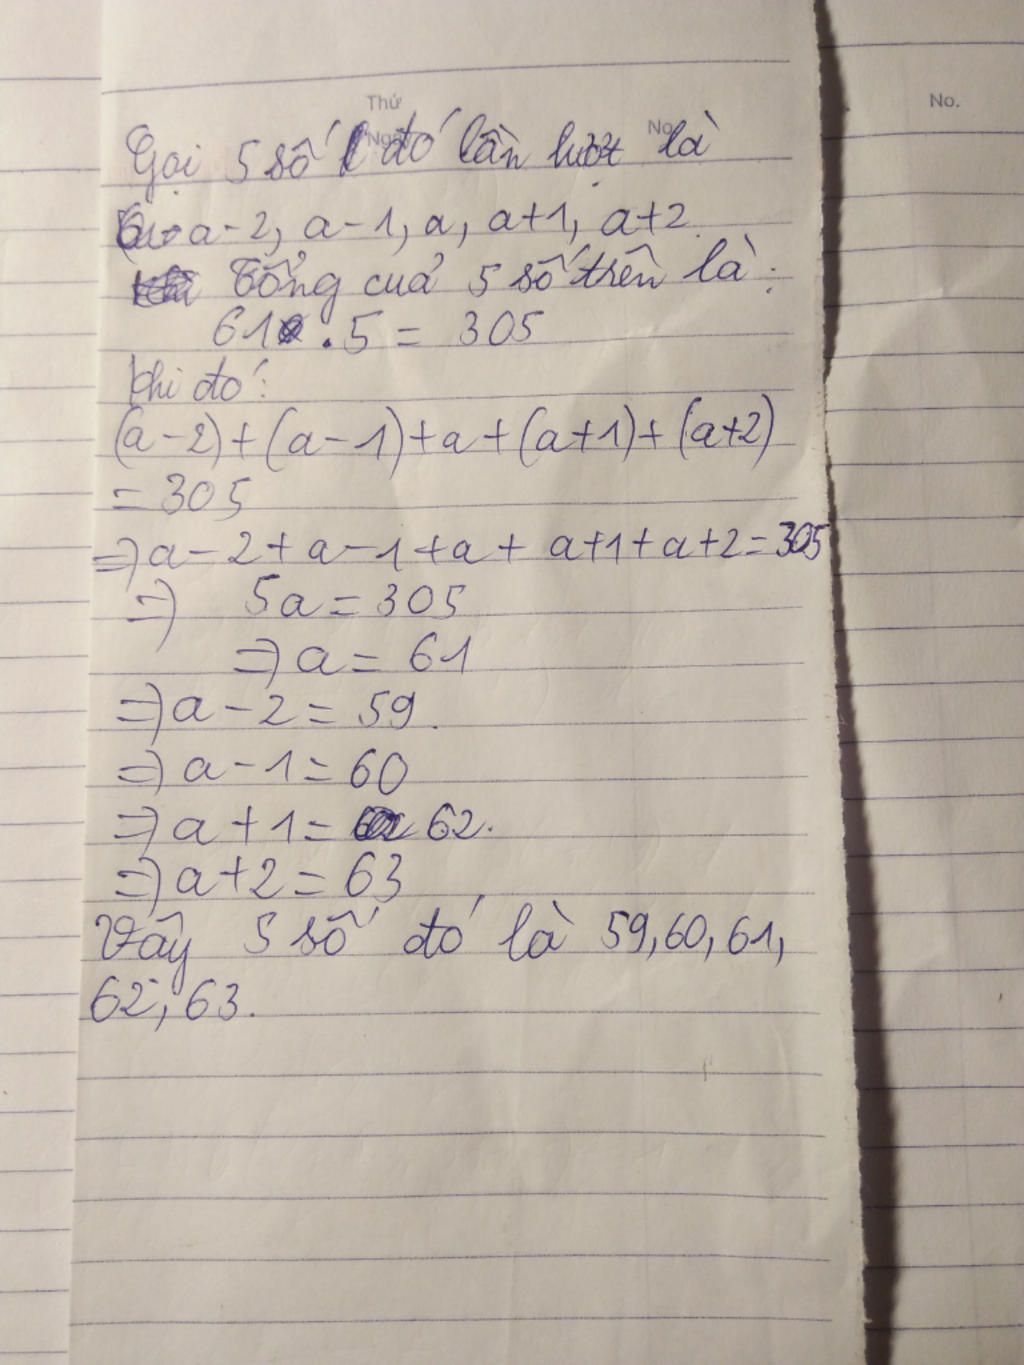 Thứ
No.
Ngày
No.
Gọi 5 số đó lần lượt là
a-2, a-1, a, a+1, a+2.
Tổng của 5 số trên là:
61 . 5 = 305
Khi đó:
(a-2)+(a-1)+a+(a+1)+(a+2)
= 305
=> a-2+a-1+a+ a+1+a+2=305
=> 5a = 305
=> a = 61
=> a - 2 = 59.
=> a - 1 = 60
=> a + 1 = 62.
=> a+2 = 63
Vậy 5 số đó là 59, 60, 61,
62, 63.